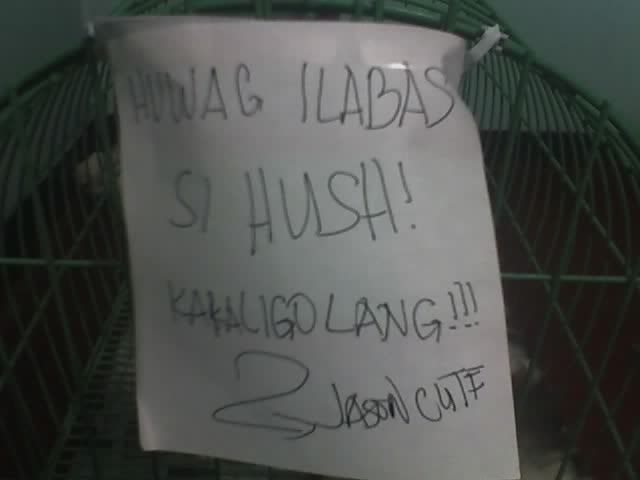 HUWAG ILABAS
SI HUSH!
KAKALIGO LANG!!!
JASON CUTE